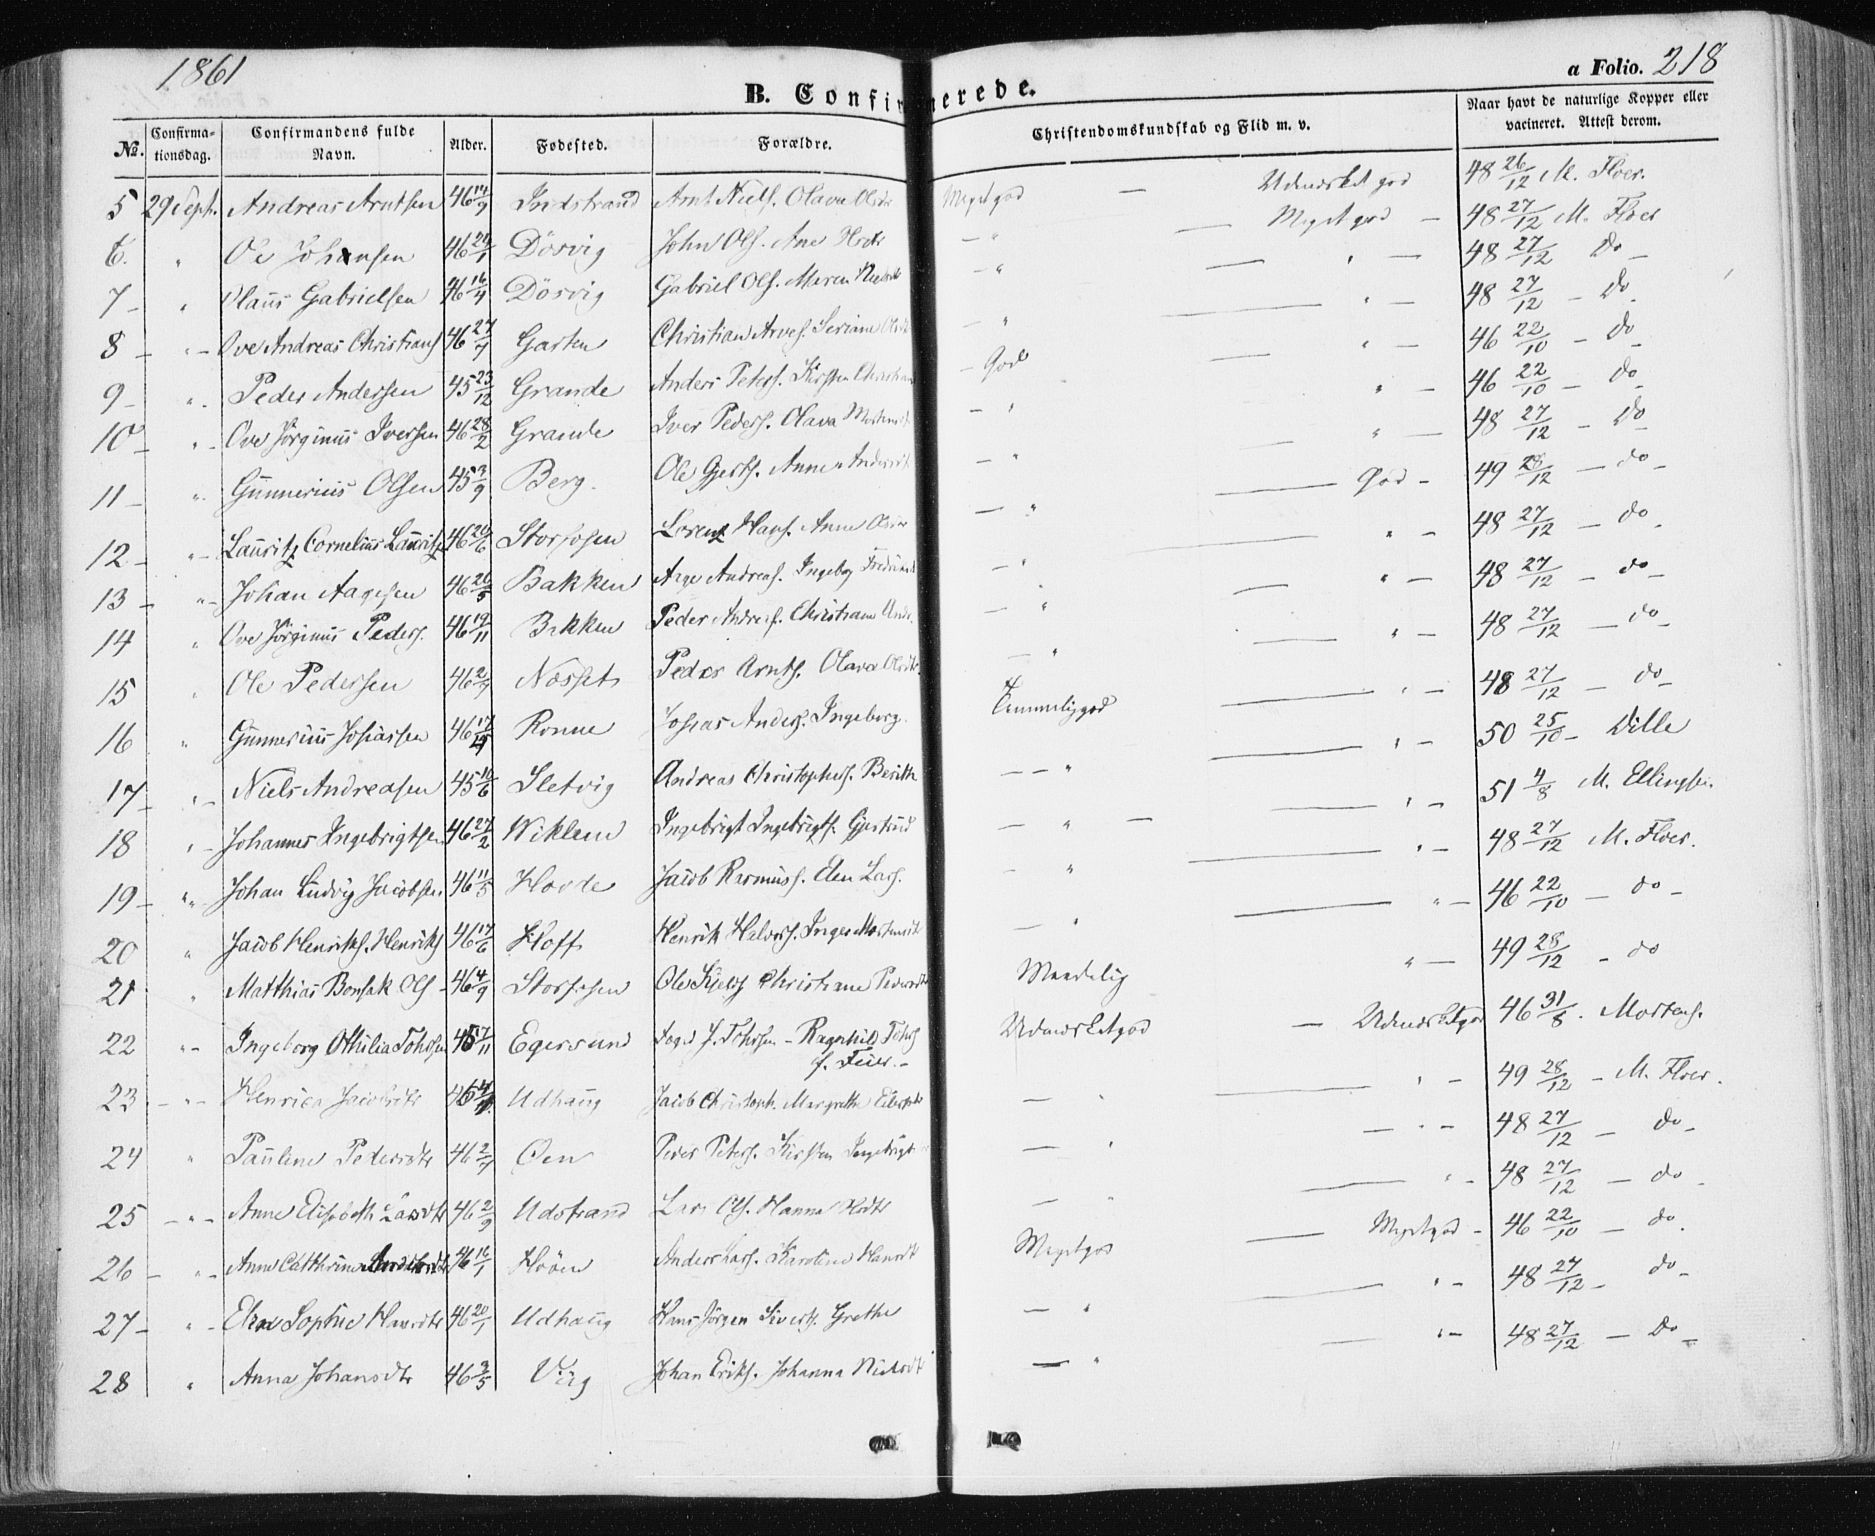 1861
B. Confirmerede.
a Folio. 218
No. Confirmationsdag. Confirmandens fulde Navn. Alder. Fødested. Forældre. Christendomskundskab og Flid m. v. Naar havt de naturlige Kopper eller vacineret. Attest derom.
5 29 Sept. Andreas Arntsen 46 14/9 Indstrand Arnt Niels. Olava Olsdtr Meget god — Udmærket god 48 26/12 M. Floer.
6. " Ole Johansen 46 Dösvig John Ols. Ane — " — Meget god — 48 27/12 M. Floer
7 - " Olaus Gabrielsen 46 16/4 Dösvig Gabriel Ols. Maren — " — " — 48 27/12 Do -
8 - " - Ove Andreas Christians 46 27/7 Garten Christian Arves. Seriane — " — " — 48 27/12 - Do
9 - " - Peder Andersen 45 23/12 Grande Anders Peters. Kirsten - God — " - 46 22/10 - do
10 - " - Ove Jörginus Iversen 46 28/2 Grande Iver Peders. Olava — " — " - 46 22/10 - do
11 - " - Gunnerius Olsen 45 3/9 Berg. Ole Gjerts. Anne — " — " — 48 27/12 - Do
12 - " - Lauritz Cornelius Lauritz 46 Storfosen Lorenz Hans. Anne — " — God - 49 28/12 - do -
13 - " - Johan Aagesen 46 20/5 Bakken Aage Andreas. Ingebor — " — " - 48 27/12 - do
14 " Ove Jörginus Peders. 46 19/11 Bakken Peder Andreas. Christiane — " — " - 48 27/12 - do -
15 " Ole Pedersen 46 2/7 Nösset Peder Arnts. Olava Olsdtr — " — " - 48 27/12 - do -
16 " Gunnerius Josiassen 46 17/ Ronne Josias Anders. Ingeborg Temmelig god — " - 48 27/12 - do -
17 - " - Niels Andreasen 45 10/6 Sletvig Andreas Christophers. Berith — " — " - 50 25/10 - Dille
18 " - Johannes Ingebrigtsen 46 27/2 Wiklem Ingebrigt Ingebrigts. Gjertrud — " — " - 51 4/8 M. Ellingsen.
19 - " - Johan Ludvig Jacobsen 46 11/5 Hovde Jacob Rasmuss. Elen Lars. — " — " - 48 27/12 M. Floer.
20 " Jacob Henriks. Henriks 46 17/6 Hoff Henrik Halvors. Inger — " — " - 46 22/10 - do -
21 " Matthias Bonsak Ols - 46 4/9 Storfosen Ole Kjels Christiane Pedersdtr Maadelig " — 49 28/12 - do
22 " - Ingeborg Othilia Fohrsen 45 7/11 Egersund Foged J. Fohrsen - Ragnhild Fohrs f. Feier. - Udmærket god — Udmærket god 46 31/8. Mortens.
23 - " - Henrica Jacobsdtr 46 Udhaug Jacob Christoph. Margrethe — " — " - 49 28/12 - M. Floer.
24 " Pauline Pedersdtr 46 2/7 Öen Peder Peters. Kirsten Ingebrigt — " — " - 48 27/12 - do -
25 - " - Anne Elisabeth Larsdtr 46 2/9 Udstrand Lars Ols. Hanna — " — " - 48 27/12 - do -
26 - " - Anne Cathrine Andersdtr 46 16/1 Höön Anders Lars. Karoline Hansdtr Meget god — Meget god - 46 22/10 - do.
27 - " - Elen Sophie Hansdtr 46 20/1 Udhaug Hans Jörgen Siverts. Grethe — " — " - 48 27/12 - do -
28 " Anna Johansdtr 46 3/5 Johan Eriks. Johanna Nielsdtr — " — " - 48 27/12 - Do -